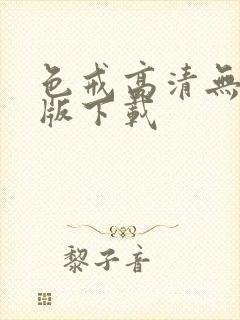 色戒高清無
版下載
黎子音